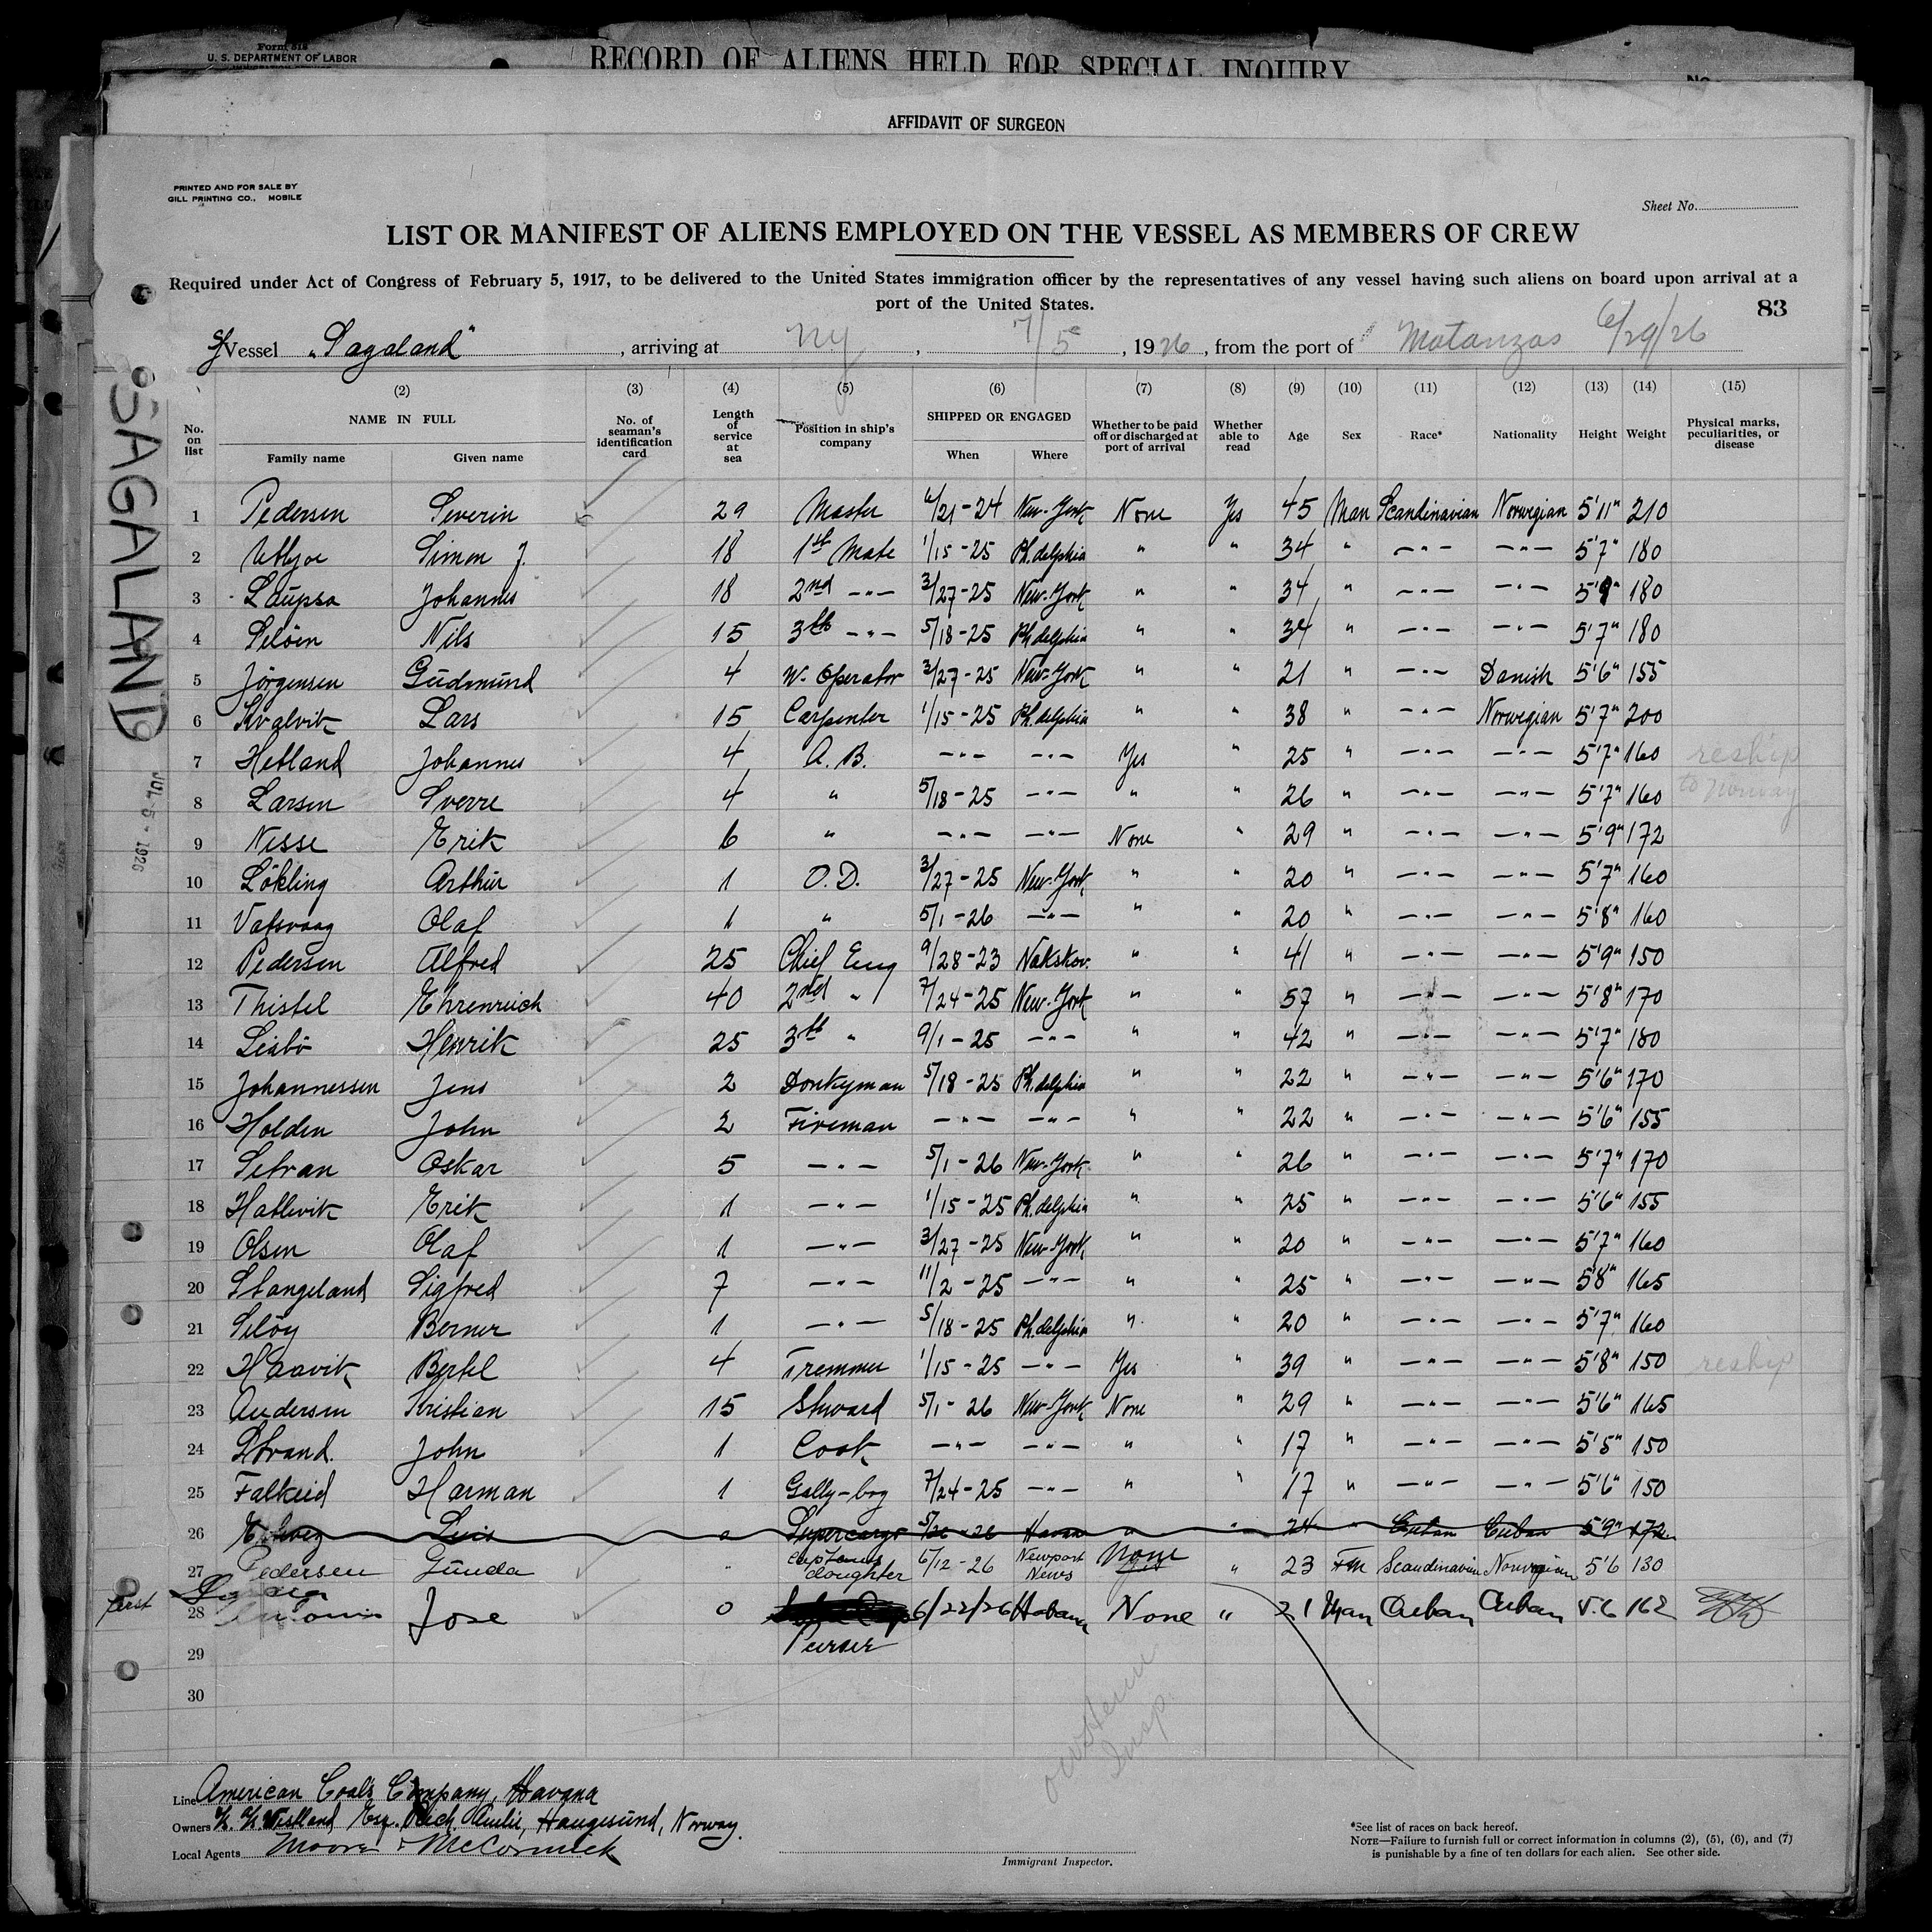 Form 518
U. S. DEPARTMENT OF LABOR
RECORD OF ALIENS HELD FOR SPECIAL INQUIRY
No.
AFFIDAVIT OF SURGEON
PRINTED AND FOR SALE BY
GILL PRINTING CO., MOBILE
Sheet No.
LIST OR MANIFEST OF ALIENS EMPLOYED ON THE VESSEL AS MEMBERS OF CREW
Required under Act of Congress of February 5, 1917, to be delivered to the United States immigration officer by the representatives of any vessel having such aliens on board upon arrival at a
port of the United States.
83
S/S Vessel "Sagaland", arriving at NY, 7/5, 1926, from the port of Matanzas 6/29/26
SAGALAND
JUL 5 - 1926
(2) (3) (4) (5) (6) (7) (8) (9) (10) (11) (12) (13) (14) (15)
No. on list NAME IN FULL Family name Given name No. of seaman's identification card Length of service at sea Position in ship's company SHIPPED OR ENGAGED When Where Whether to be paid off or discharged at port of arrival Whether able to read Age Sex Race* Nationality Height Weight Physical marks, peculiarities, or disease
1 Pedersen Severin 29 Master 6/21-24 New-York None Yes 45 Man Scandinavian Norwegian 5'11" 210
2 Simon J. 18 1th Mate 1/15-25 Ph.delphia " " 34 " -"- -"- 5'7" 180
3 Laupsa Johannes 18 2nd -"- 3/27-25 New-York " " 34 " -"- -"- 5'9" 180
4 Selöen Nils 15 3th -"- 5/18-25 Ph.delphia " " 34 " -"- -"- 5'7" 180
5 Jörgensen Gudmund 4 W. Operator 3/27-25 New-York " " 21 " -"- Danish 5'6" 155
6 Kvalvik Lars 15 Carpenter 1/15-25 Ph.delphia " " 38 " -"- Norwegian 5'7" 200
7 Hetland Johannes 4 A. B. -"- -"- Yes " 25 " -"- -"- 5'7" 160 reship
8 Larsen Sverre 4 " 5/18-25 -"- " " 26 " -"- -"- 5'7" 160 to Norway
9 Nesse Erik 6 " -"- -"- None " 29 " -"- -"- 5'9" 172
10 Lökling Arthur 1 O.D. 3/27-25 New-York " " 20 " -"- -"- 5'7" 160
11 Vatsvaag Olaf 1 " 5/1-26 -"- " " 20 " -"- -"- 5'8" 160
12 Pedersen Alfred 25 Chief Eng 9/28-23 Nakskov. " " 41 " -"- -"- 5'9" 150
13 Thistel Ehrenreich 40 2nd " 7/24-25 New-York " " 57 " -"- -"- 5'8" 170
14 Henrik 25 3th " 9/1-25 -"- " " 42 " -"- -"- 5'7" 180
15 Johannessen Jens 2 Donkyman 5/18-25 Ph.delphia " " 22 " -"- -"- 5'6" 170
16 Holden John 2 Fireman -"- -"- " " 22 " -"- -"- 5'6" 155
17 Setran Oskar 5 -"- 5/1-26 New-York " " 26 " -"- -"- 5'7" 170
18 Hatlevik Erik 1 -"- 1/15-25 Ph.delphia " " 25 " -"- -"- 5'6" 155
19 Olsen Olaf 1 -"- 3/27-25 New-York " " 20 " -"- -"- 5'7" 160
20 Stangeland Sigfred 7 -"- 11/2-25 -"- " " 25 " -"- -"- 5'8" 165
21 Selöy Berner 1 -"- 5/18-25 Ph.delphia " " 20 " -"- -"- 5'7" 160
22 Haavik Bertel 4 Tremmer 1/15-25 -"- Yes " 39 " -"- -"- 5'8" 150 reship
23 Andersen Kristian 15 Steward 5/1-26 New-York None " 29 " -"- -"- 5'6" 165
24 Strand. John 1 Cook -"- -"- " " 17 " -"- -"- 5'5" 150
25 Falkeid Harman 1 Gally-boy 7/24-25 -"- " " 17 " -"- -"- 5'6" 150
26 Luis 0 Supercargo 5/26-26 Havana " " 24 " Cuban Cuban 5'9" 172
27 Pedersen Gunda " Captains daughter 6/12-26 Newport News None " 23 FM Scandinavian Norwegian 5'6 130
first
28 Antonio Jose 0 6/22/26 Habana None " 21 Man Cuban Cuban 5.6 162
29 Purser
30
Insp.
Line American Coals Company, Havana
Owners Haugesund, Norway.
Local Agents Moore & McCormick
Immigrant Inspector.
*See list of races on back hereof.
NOTE—Failure to furnish full or correct information in columns (2), (5), (6), and (7)
is punishable by a fine of ten dollars for each alien. See other side.